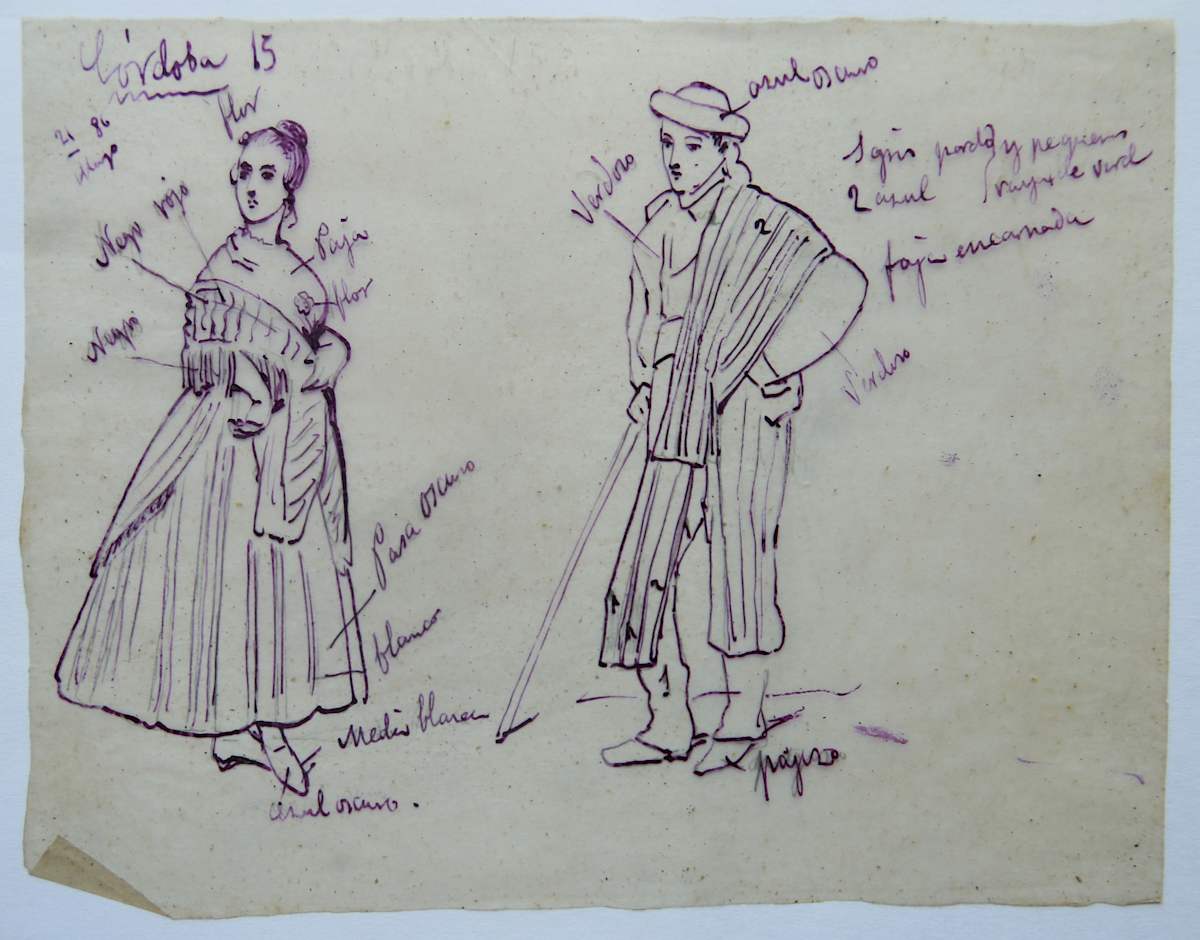 Córdoba 15
21 86
flor
rojo
Negro
Paja
flor
Negro
Rosa oscuro
blanco
Media blanca
azul oscuro.
azul oscuro
Verdoso
1 gris pardo y pequeñas
2 azul rayas de verde
faja encarnada
Verdoso
2
2
1
1
1
pajizo